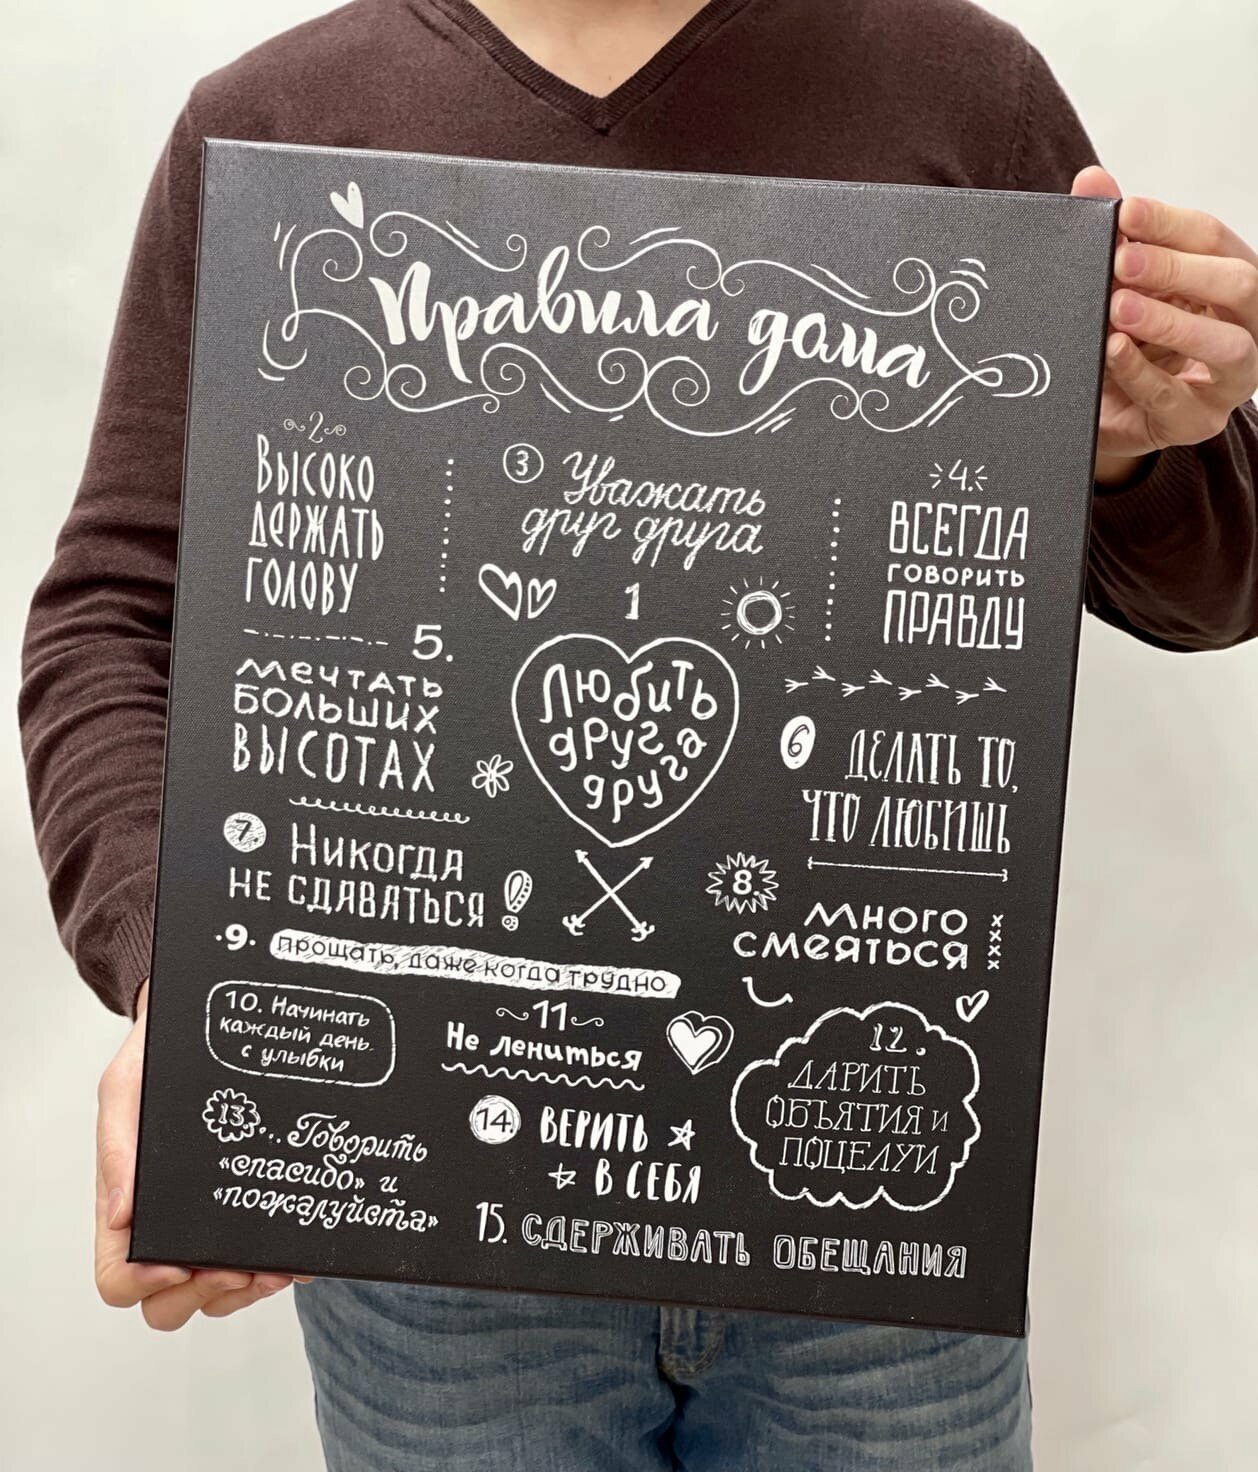 Правила дома
2
Высоко
держать
голову
3 Уважать
друг друга
4.
ВСЕГДА
ГОВОРИТЬ
ПРАВДУ
1
Любить
друг
друга
5.
мечтать
больших
высотах
6 ДЕЛАТЬ ТО,
ЧТО ЛЮБИШЬ
7. Никогда
не сдаваться
8.
много
смеяться
.9. прощать, даже когда трудно
10. Начинать
каждый день
с улыбки
11
Не лениться
12.
ДАРИТЬ
ОБЪЯТИЯ И
ПОЦЕЛУИ
13... Говорить
«спасибо» и
«пожалуйста»
14. ВЕРИТЬ
В СЕБЯ
15. СДЕРЖИВАТЬ ОБЕЩАНИЯ